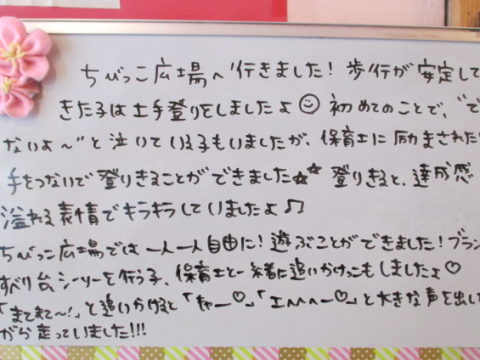 ちびっこ広場へ行きました！歩行が安定して
きた子は土手登りをしましたよ☺初めてのことで、"で
ないよ〜"と泣いている子もいましたが、保育士に励まされた
手をつないで登りきることができました☆☆登りきると、達成感
溢れる表情でキラキラしていましたよ♫
ちびっこ広場では一人一人自由に！遊ぶことができました！ブラン
すべり台、シーソーを行う子、保育士と一緒に追いかけっこもしましたよ♡
「まてまて〜！」と追いかけると「キャー♡」「エヘヘー♡」と大きな声を出し
がら走っていました!!!